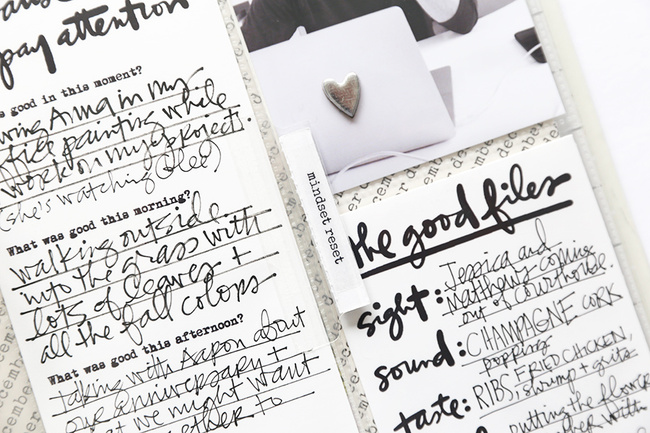 pay attention
s good in this moment?
Anna in my
office painting while
work on my project.
(she's watching Glee)
What was good this morning?
walking outside
into the grass with
lots of leaves +
all the fall colors
What was good this afternoon?
talking with Aaron about
our anniversary +
what we might want
together to
mindset reset
the good files
sight: Jessica and
Matthew coming
out of courthouse.
sound: CHAMPAGNE cork
popping
taste: RIBS, FRIED CHICKEN,
shrimp + grits
putting the flower
with
december